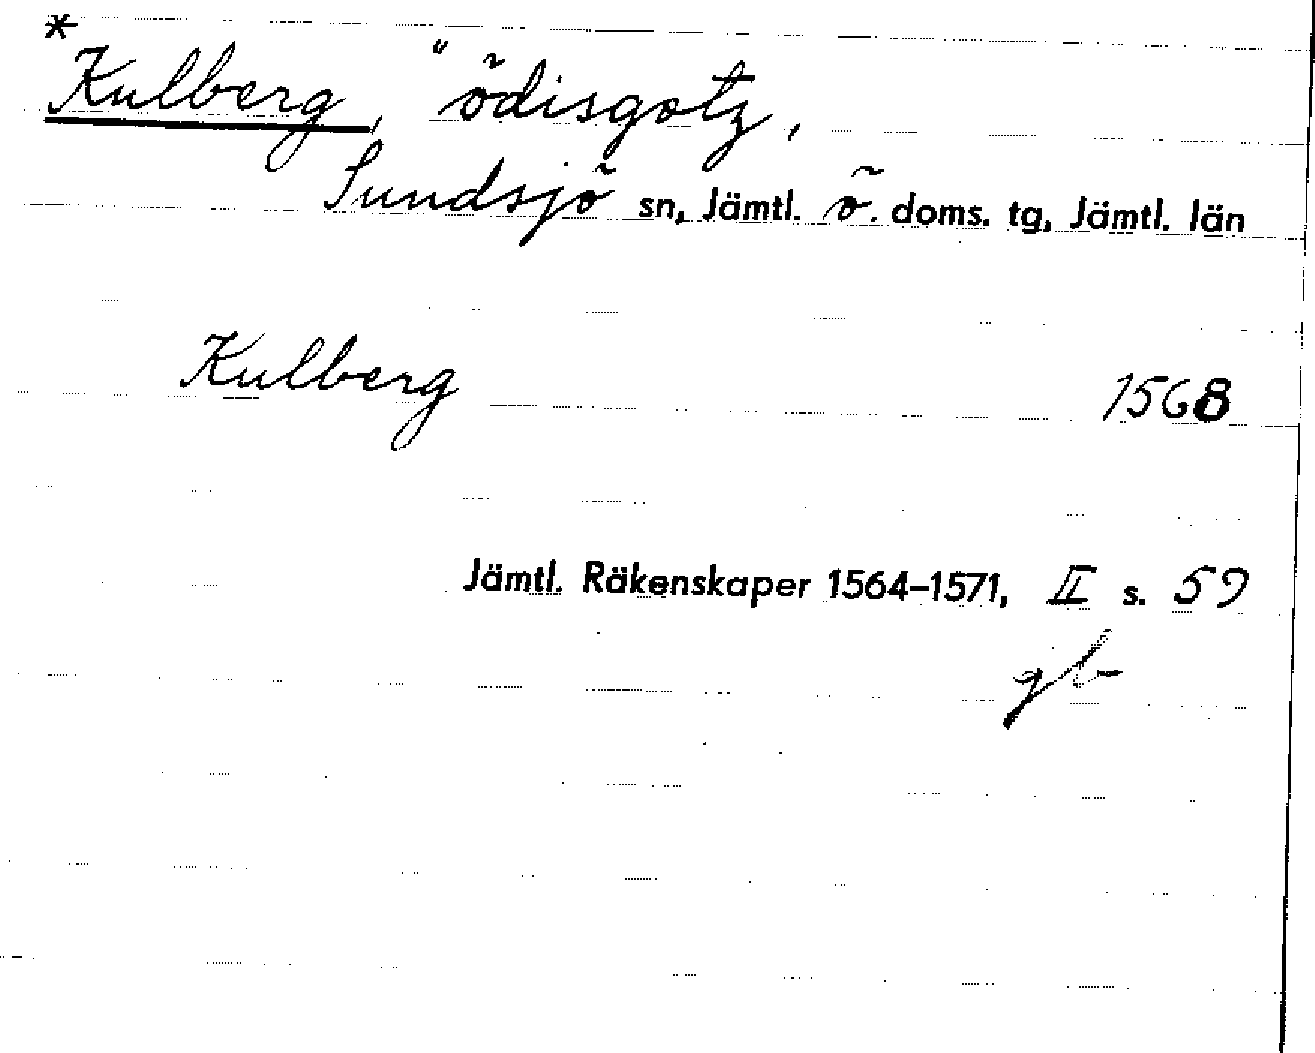 *
Kulberg, "ödisgotz,
Sundsjö sn, Jämtl. ö. doms. tg, Jämtl. län
Kulberg 1568
Jämtl. Räkenskaper 1564–1571, II s. 59
gb